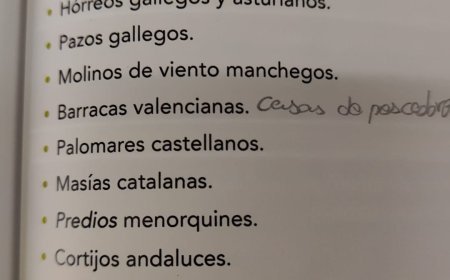 • Hórreos gallegos y asturianos.
• Pazos gallegos.
• Molinos de viento manchegos.
• Barracas valencianas. Casas de pescador
• Palomares castellanos.
• Masías catalanas.
• Predios menorquines.
• Cortijos andaluces.